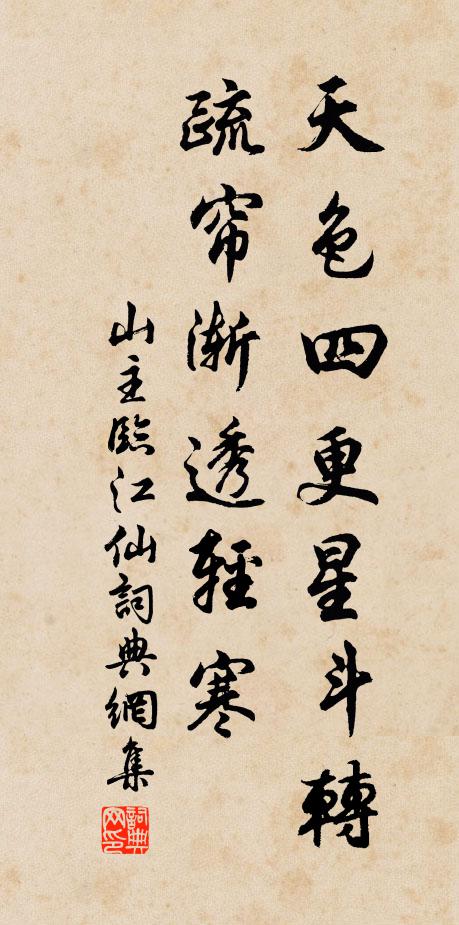 天色四更星斗轉
疏帘漸透輕寒
山主臨江仙詞典網集
詞典网印